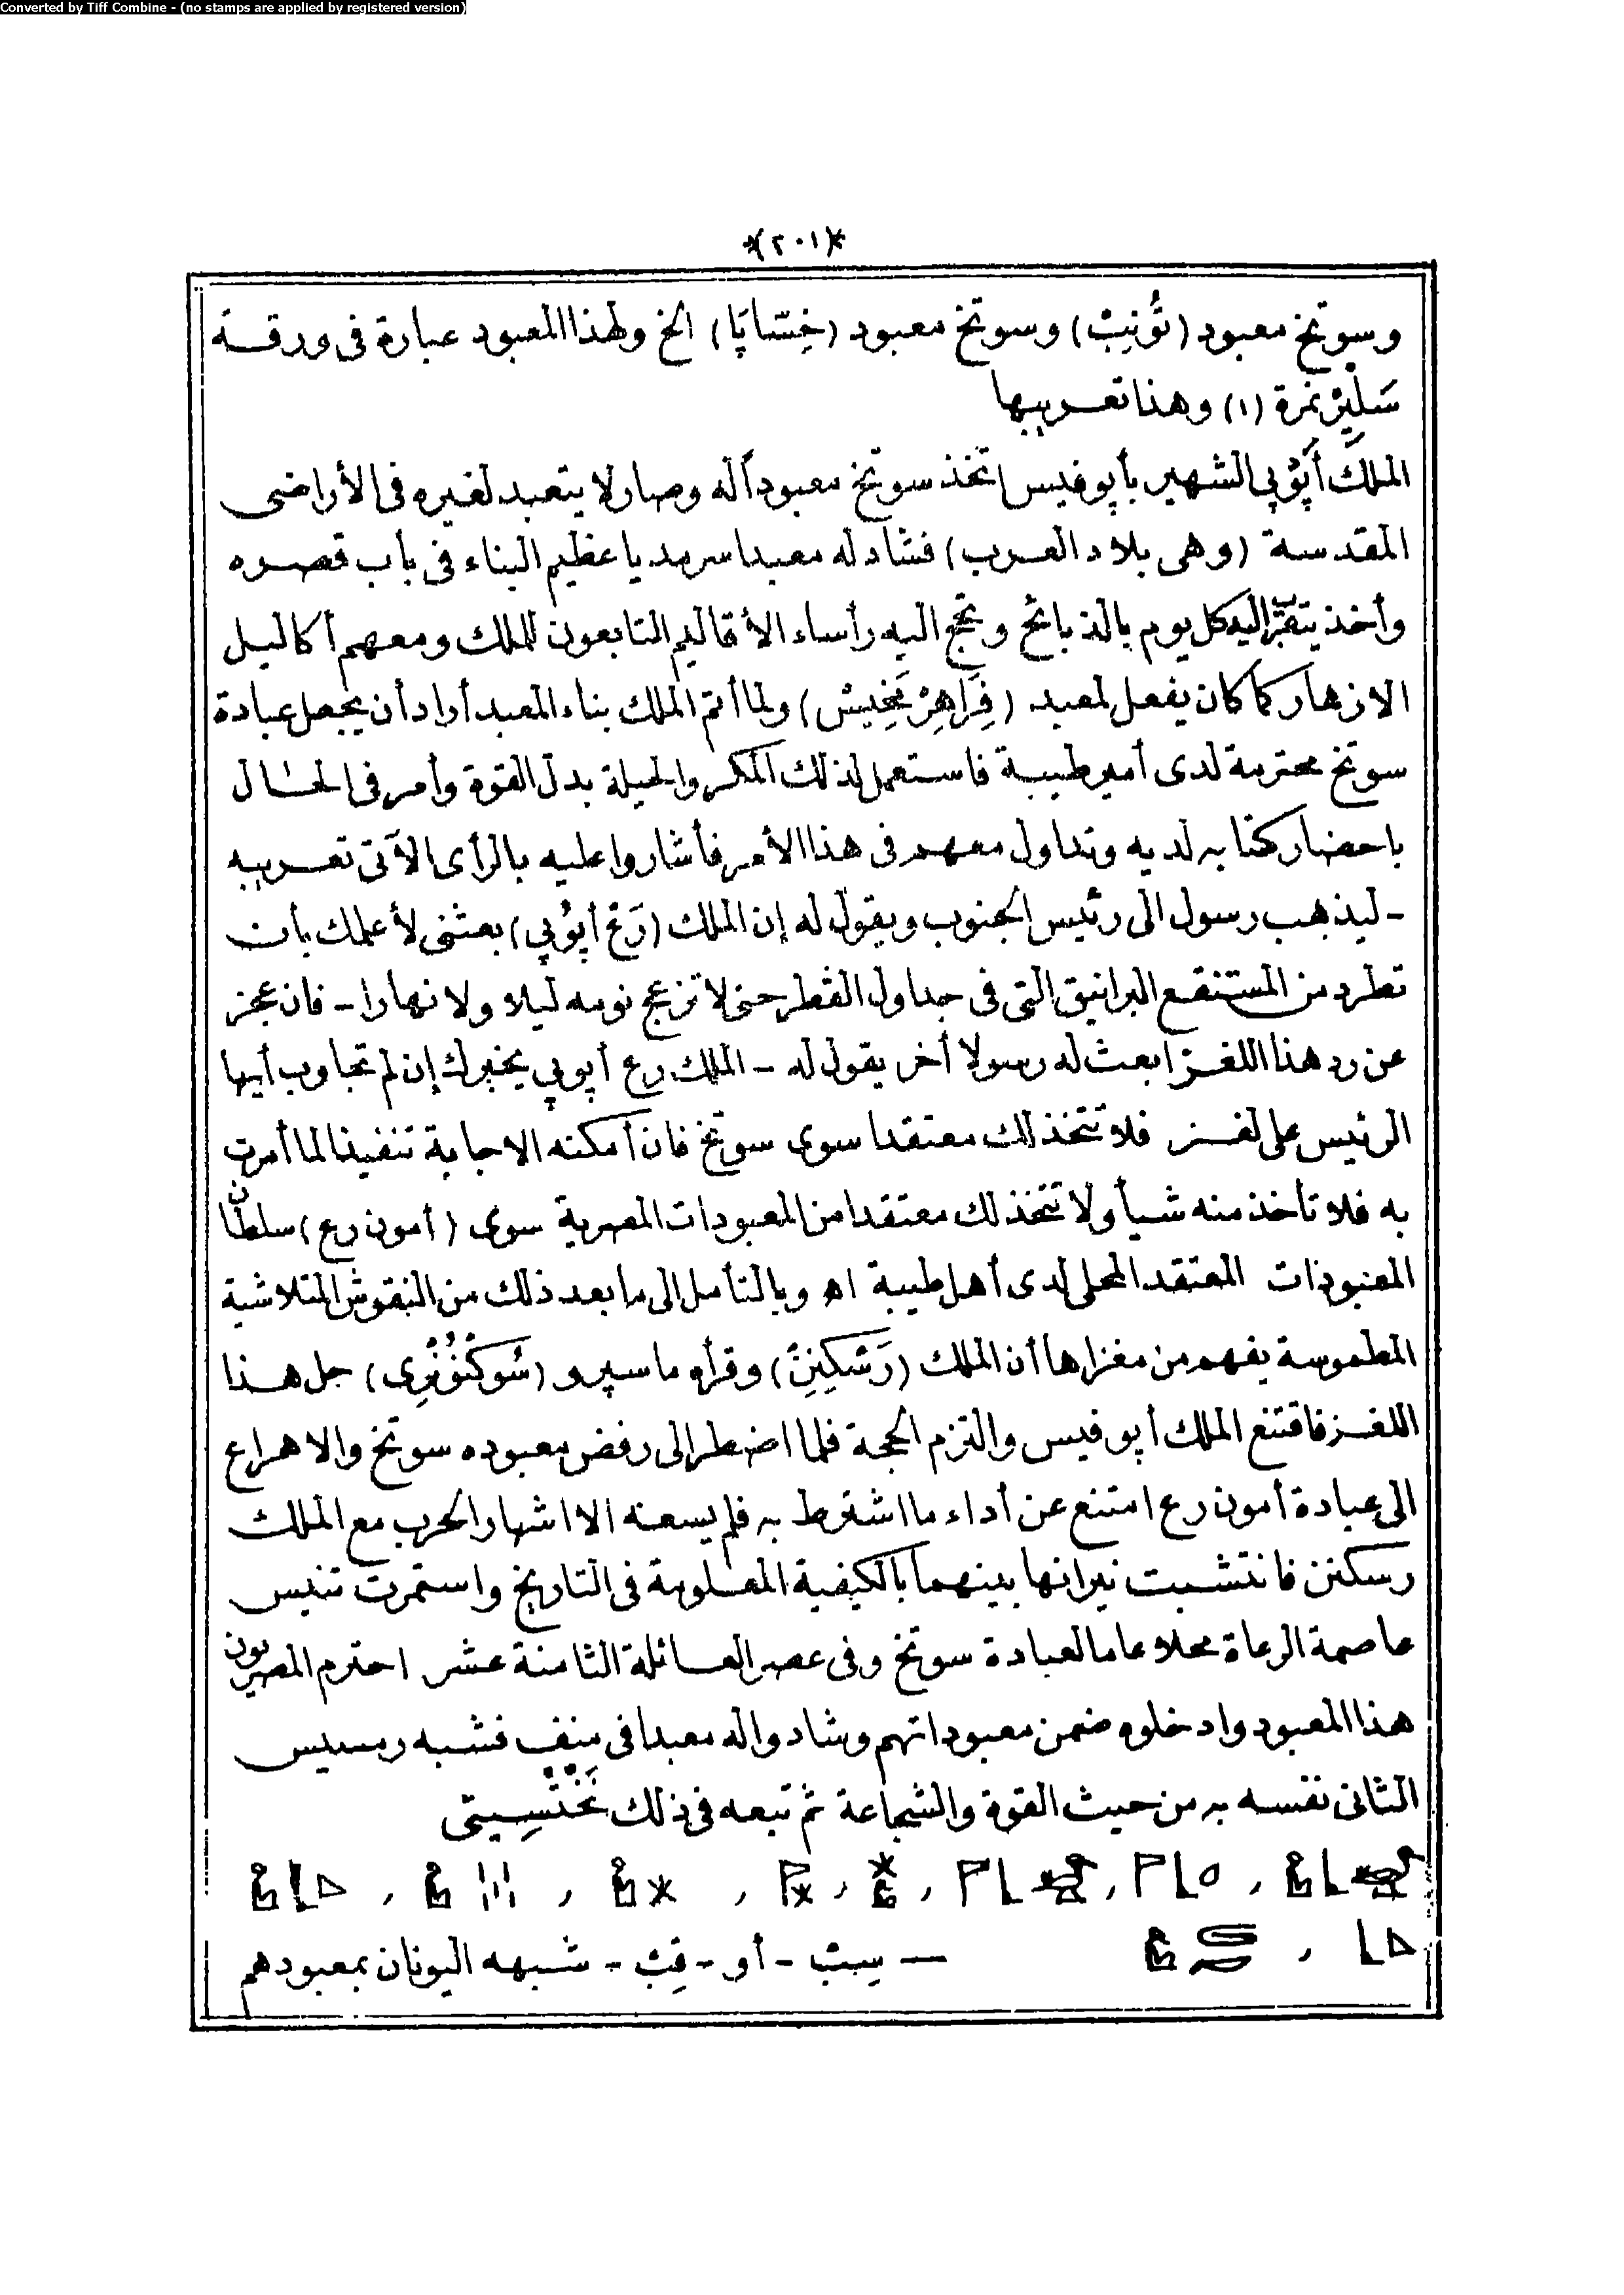 Converted by Tiff Combine - (no stamps are applied by registered version)
*(٢٠١)*
وسوتخ معبود (تُونِبْ) وسوتخ معبود (خِسَاپَا) الخ ولهذا المعبود عبارة فى ورقة
سَلِيَرْ نمرة (١) وهذا تعريبها
الملك أَپُوپِى الشهير بأپوفيس اتخذ سوتخ معبوداً له وصار لا يتعبد لغيره فى الأراضى
المقدسة (وهى بلاد العرب) فشاد له معبدا سرمديا عظيم البناء فى باب قصره
وأخذ يتقرّب اليه كل يوم بالذبائح وتحج اليه رأساء الأقاليم التابعون للملك ومعهم أكاليل
الازهار كما كان يفعل لمعبد (فِرَاهِرْمَخِيسْ) ولما أتم الملك بناء المعبد أراد أن يجعل عبادة
سوتخ محترمة لدى أمير طيبة فاستعمل لذلك المكر والحيلة بدل القوة وأمر فى الحال
باحضار كتابه لديه وتداول معهم فى هذا الأمر فأشاروا عليه بالرأى الآتى تعريبه
- ليذهب رسول الى رئيس الجنوب ويقول له إن الملك (رَعْ أپُوپِى) بعثنى لأعلمك بأن
تطرد من المستنقع البرانيق التى فى جداول القطر حتى لا تزعج نومه ليلا ولا نهارا - فان عجز
عن رد هذا اللغز ابعث له رسولا أخر يقول له - الملك رع أپوپى يخبرك إن لم تجاوب أيها
الرئيس على لغز فلا تتخذ لك معتقدا سوى سوتخ فان أمكنه الاجابة تنفيذا لما أمرت
به فلا تأخذ منه شيأ ولا تتخذ لك معتقدا من المعبودات المصرية سوى (أمون رع) سلطان
المعبودات المعتقد المحلى لدى أهل طيبة اه وبالتأمل الى ما بعد ذلك من النقوش المتلاشية
المطموسة يفهم من مغزاها أن الملك (رَسْكِنِنْ) وقرأه ماسپرو (سُوكْنُونْرِى) حل هذا
اللغز فاقتنع الملك أپوفيس والتزم الحجة فلما اضطر الى رفض معبوده سوتخ والاهراع
الى عبادة أمون رع امتنع عن أداء ما اشترط به فلم يسعه الا اشهار الحرب مع الملك
رسكنن فانتشبت نيرانها بينهما بالكيفية المعلومة فى التاريخ واستمرت تنيس
عاصمة الرعاة محلا عاما لعبادة سوتخ وفى عصر العائلة الثامنة عشر احترم المصريون
هذا المعبود وادخلوه ضمن معبوداتهم وشادوا له معبدا فى منف فشبه رمسيس
الثانى نفسه به من حيث القوة والشجاعة ثم تبعه فى ذلك
— سِبْ - أو - قِبْ - شبهه اليونان بمعبودهم